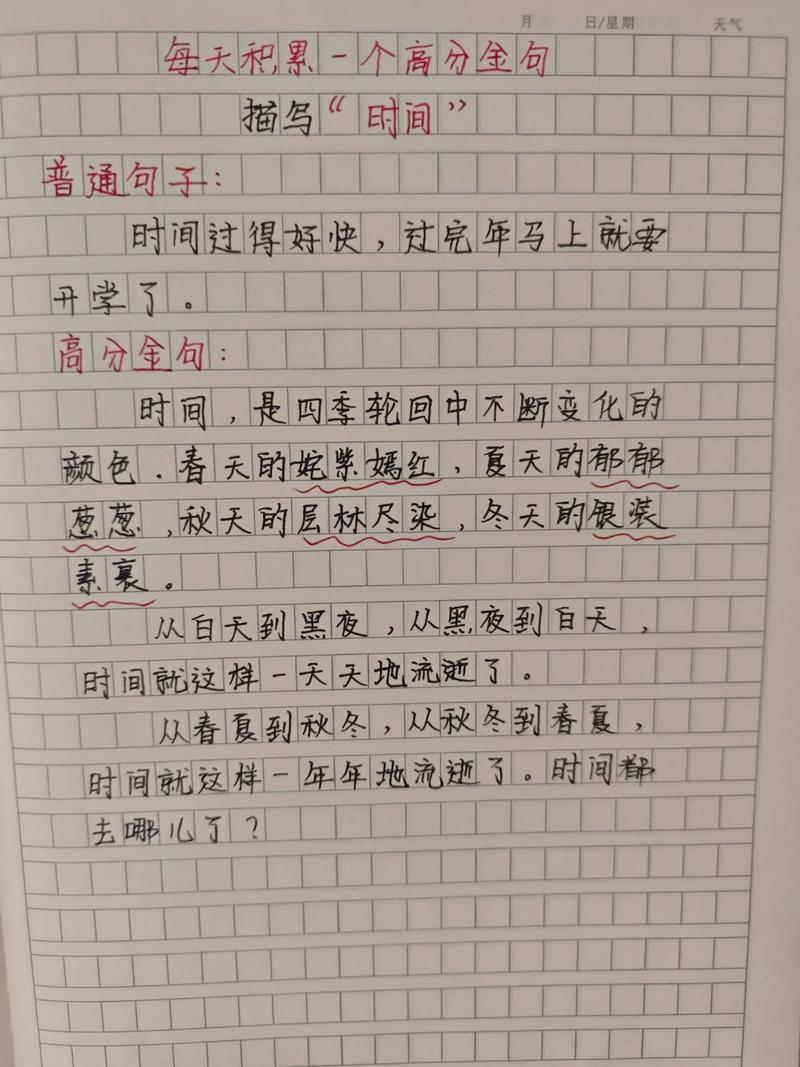 月 日/星期 天气
每天积累一个高分金句
描写“时间”
普通句子：
时间过得好快，过完年马上就要
开学了。
高分金句：
时间，是四季轮回中不断变化的
颜色．春天的姹紫嫣红，夏天的郁郁
葱葱，秋天的层林尽染，冬天的银装
素裹。
从白天到黑夜，从黑夜到白天，
时间就这样一天天地流逝了。
从春夏到秋冬，从秋冬到春夏，
时间就这样一年年地流逝了。时间都
去哪儿了？